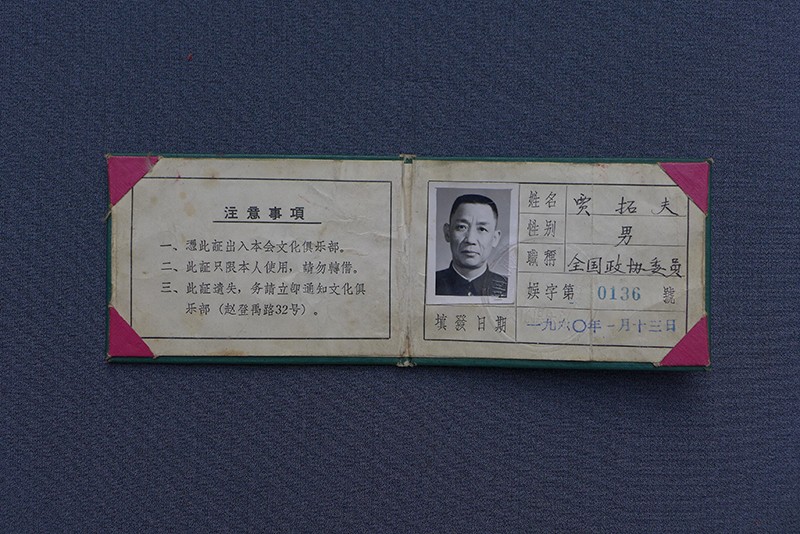 注意事項
一、憑此証出入本会文化俱乐部。
二、此証只限本人使用，請勿轉借。
三、此証遺失，务請立即通知文化俱
乐部（赵登禹路32号）。
姓名 贾拓夫
性别 男
職称 全国政协委员
娱字第 0136 號
填發日期 一九六〇年一月十三日